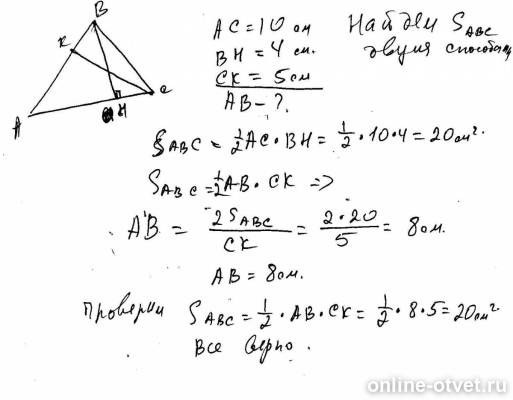 B
K
C
A
H
AC = 10 см
BH = 4 см.
CK = 5 см
AB - ?
Найдем S_ABC
двумя способами
S_ABC = 1/2 AC · BH = 1/2 · 10 · 4 = 20 см².
S_ABC = 1/2 AB · CK =>
AB = 2S_ABC/CK = 2·20/5 = 8 см.
AB = 8 см.
Проверки S_ABC = 1/2 · AB · CK = 1/2 · 8 · 5 = 20 см²
Все верно.
online-otvet.ru